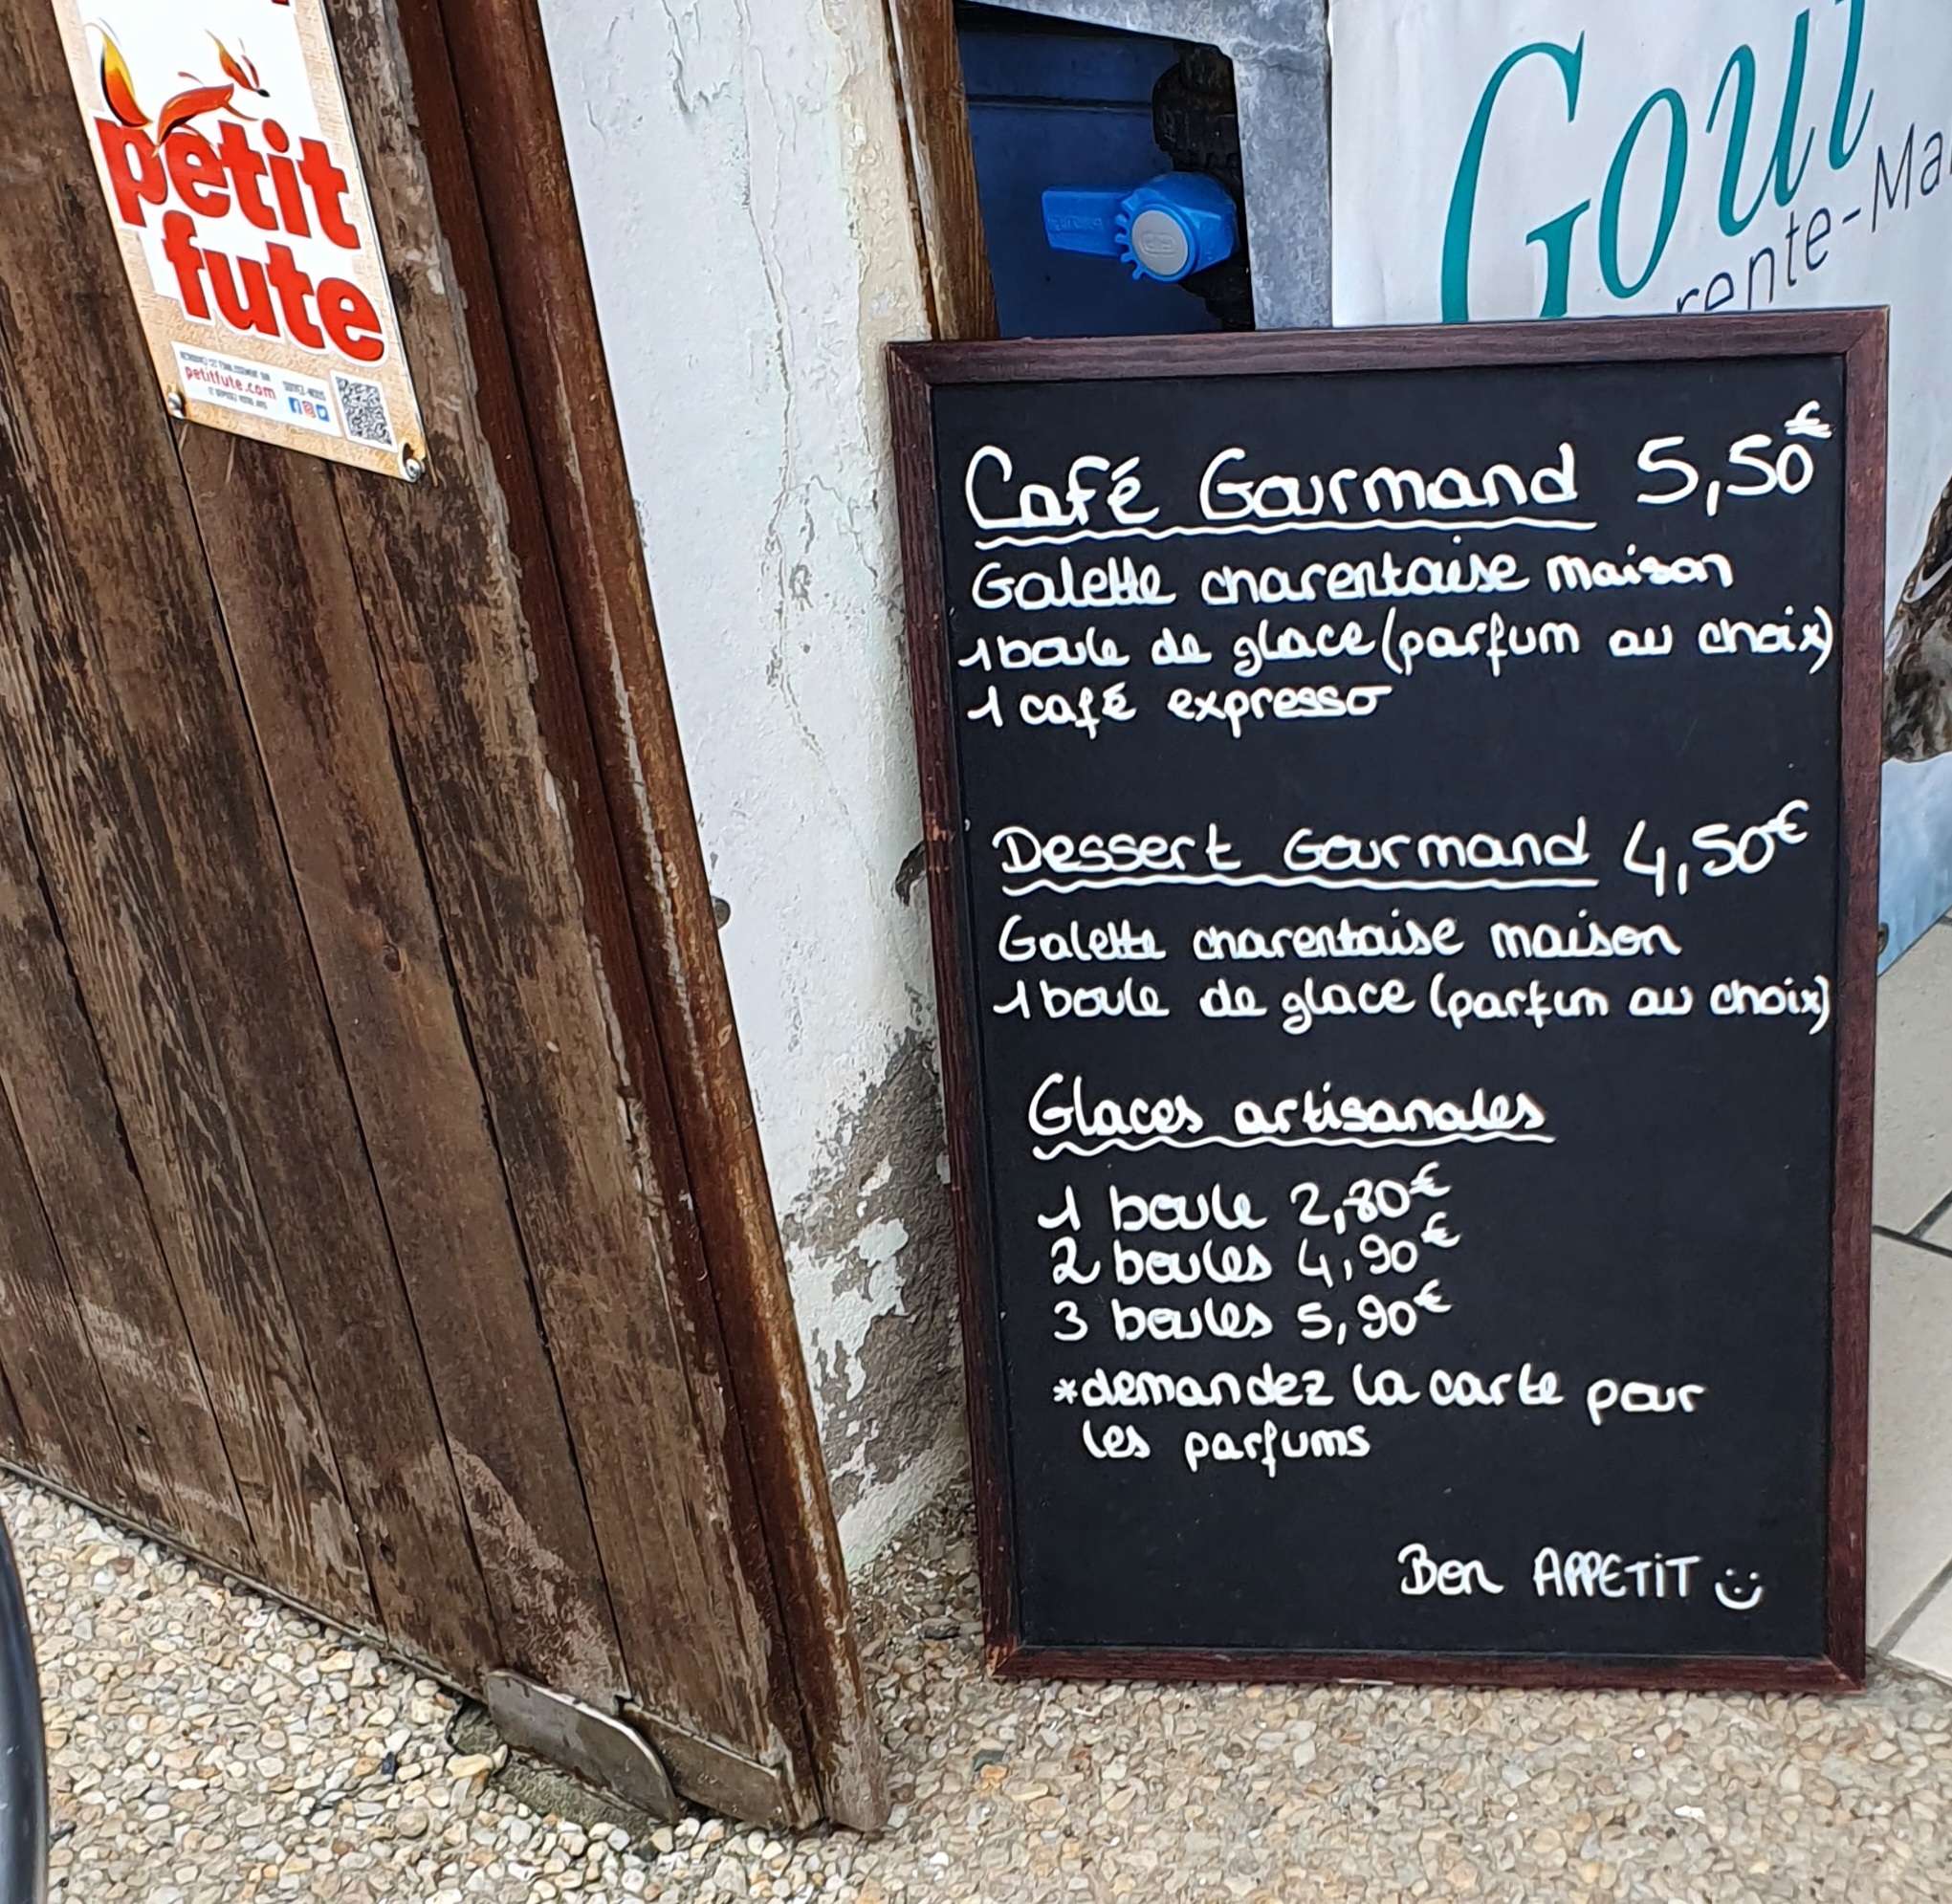 petit
fute
petitfute.com
Gout
rente-Ma
Café Gourmand 5,50€
Galette charentaise maison
1 boule de glace (parfum au choix)
1 café expresso
Dessert Gourmand 4,50€
Galette charentaise maison
1 boule de glace (parfum au choix)
Glaces artisanales
1 boule 2,80€
2 boules 4,90€
3 boules 5,90€
*demandez la carte pour
les parfums
Bon APPETIT